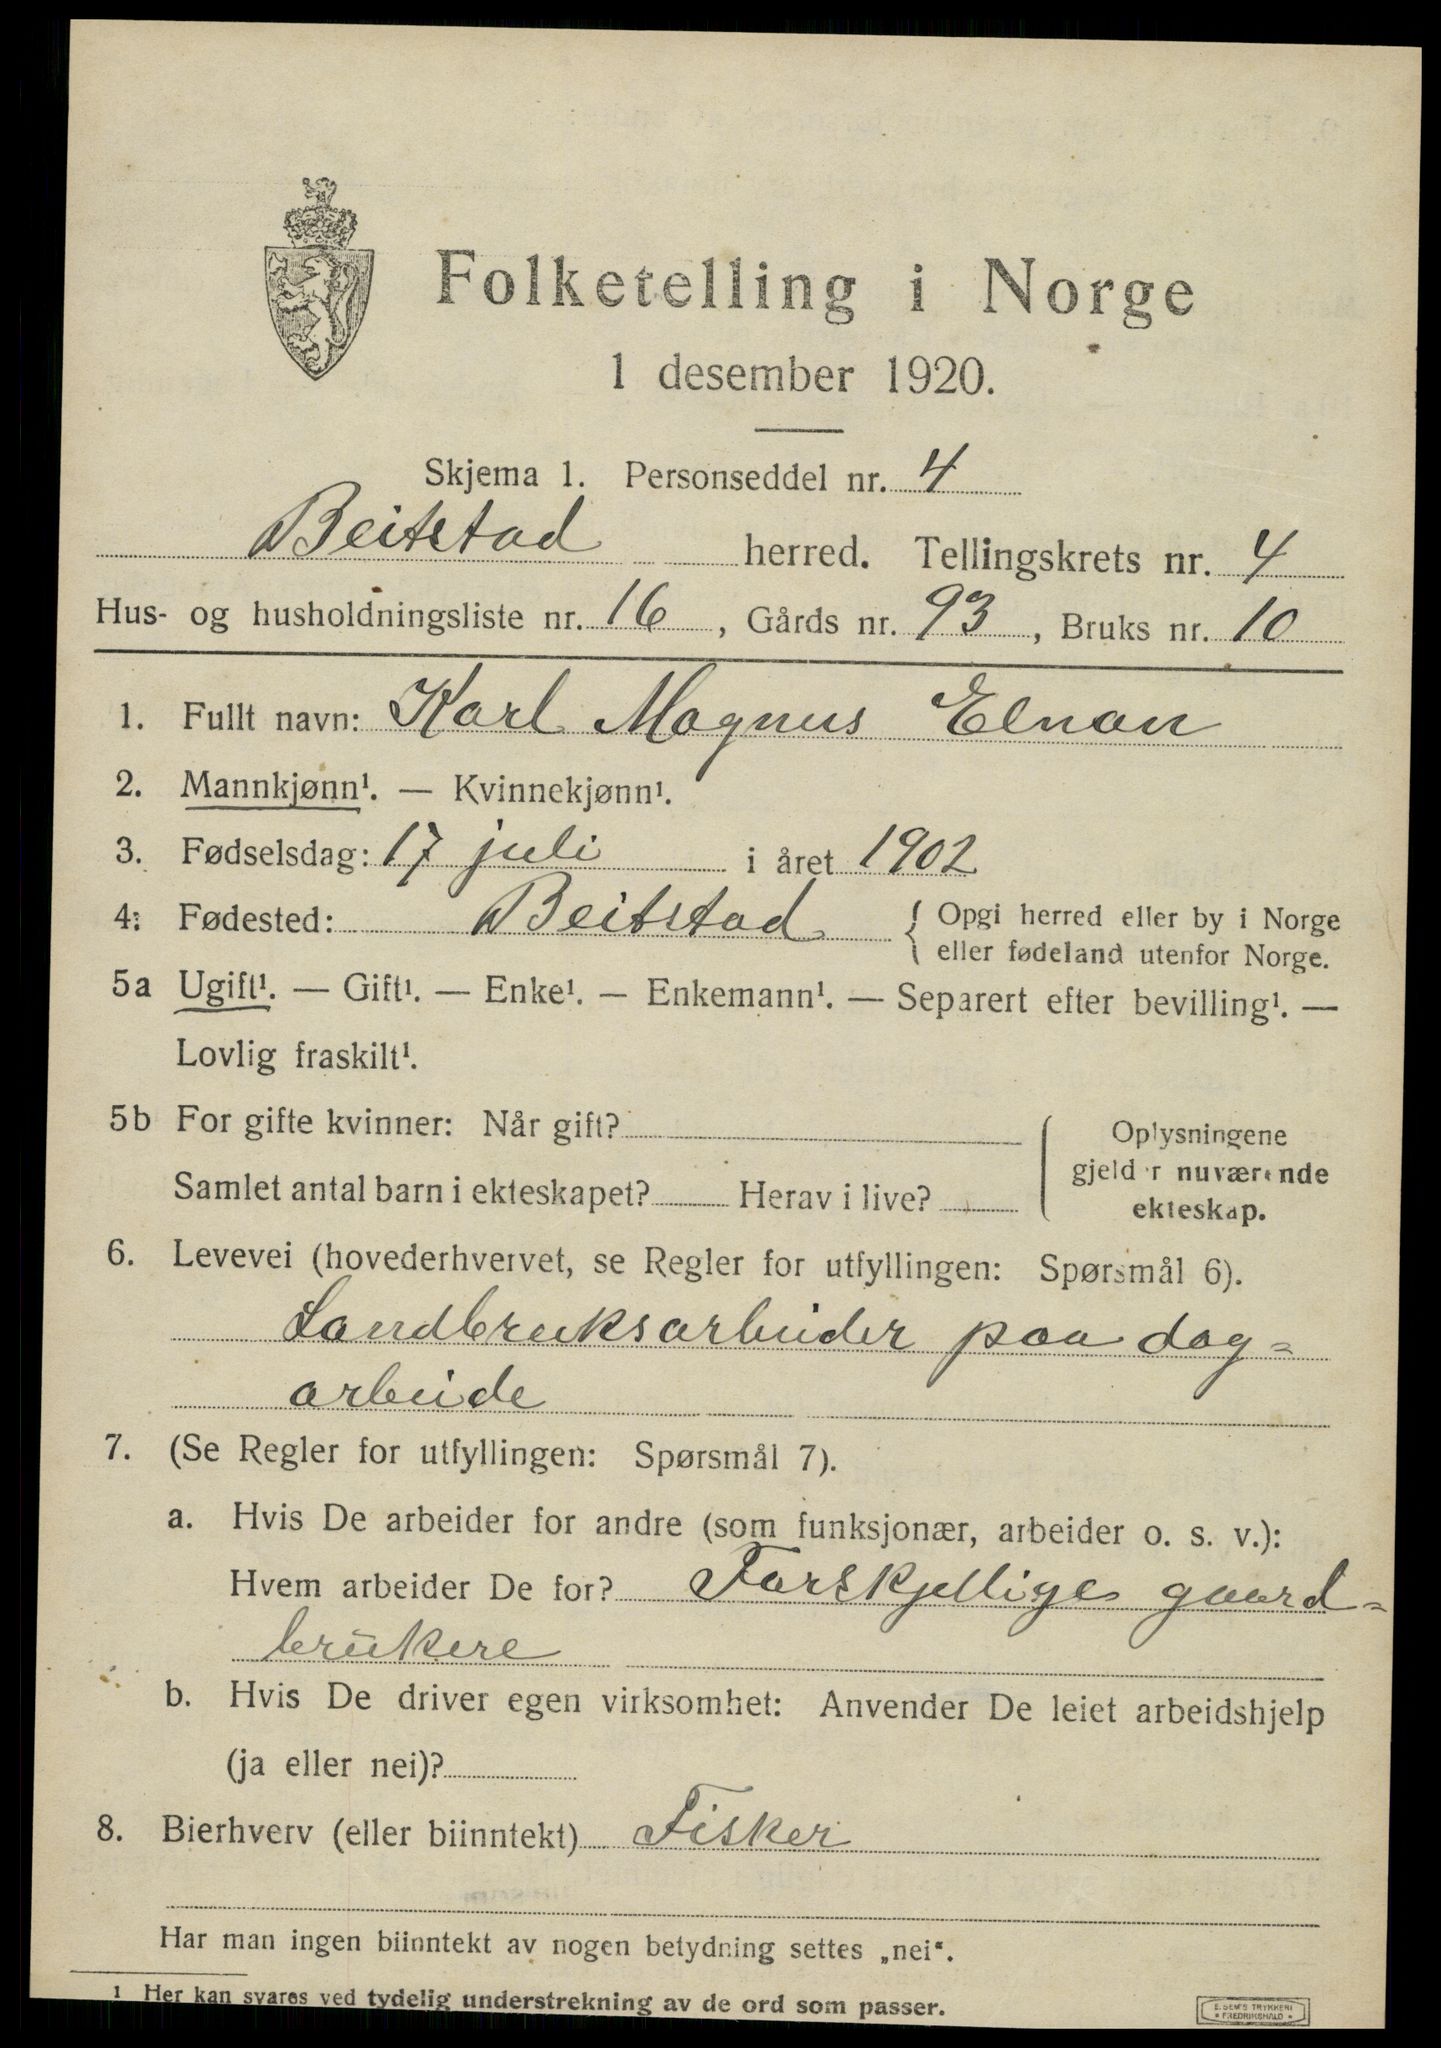 Folketelling i Norge
1 desember 1920.
Skjema 1. Personseddel nr. 4
Beitstad herred. Tellingskrets nr. 4
Hus- og husholdningsliste nr. 16, Gårds nr. 93, Bruks nr. 10
1. Fullt navn: Karl Magnus Elnan
2. Mannkjønn¹. — Kvinnekjønn¹.
3. Fødselsdag: 17 juli i året 1902
4. Fødested: Beitstad { Opgi herred eller by i Norge
eller fødeland utenfor Norge.
5a Ugift¹. — Gift¹. — Enke¹. — Enkemann¹. — Separert efter bevilling¹. —
Lovlig fraskilt¹.
5b For gifte kvinner: Når gift?
Samlet antal barn i ekteskapet? Herav i live?
Oplysningene
gjelder nuværende
ekteskap.
6. Levevei (hovederhvervet, se Regler for utfyllingen: Spørsmål 6).
Landbruksarbeider paa dag=
arbeide
7. (Se Regler for utfyllingen: Spørsmål 7).
a. Hvis De arbeider for andre (som funksjonær, arbeider o. s. v.):
Hvem arbeider De for? Forskjellige gaard=
brukere
b. Hvis De driver egen virksomhet: Anvender De leiet arbeidshjelp
(ja eller nei)?
8. Bierhverv (eller biinntekt) Fisker
Har man ingen biinntekt av nogen betydning settes „nei".
¹ Her kan svares ved tydelig understrekning av de ord som passer.
E. SEM'S TRYKKERI
* FREDRIKSHALD *